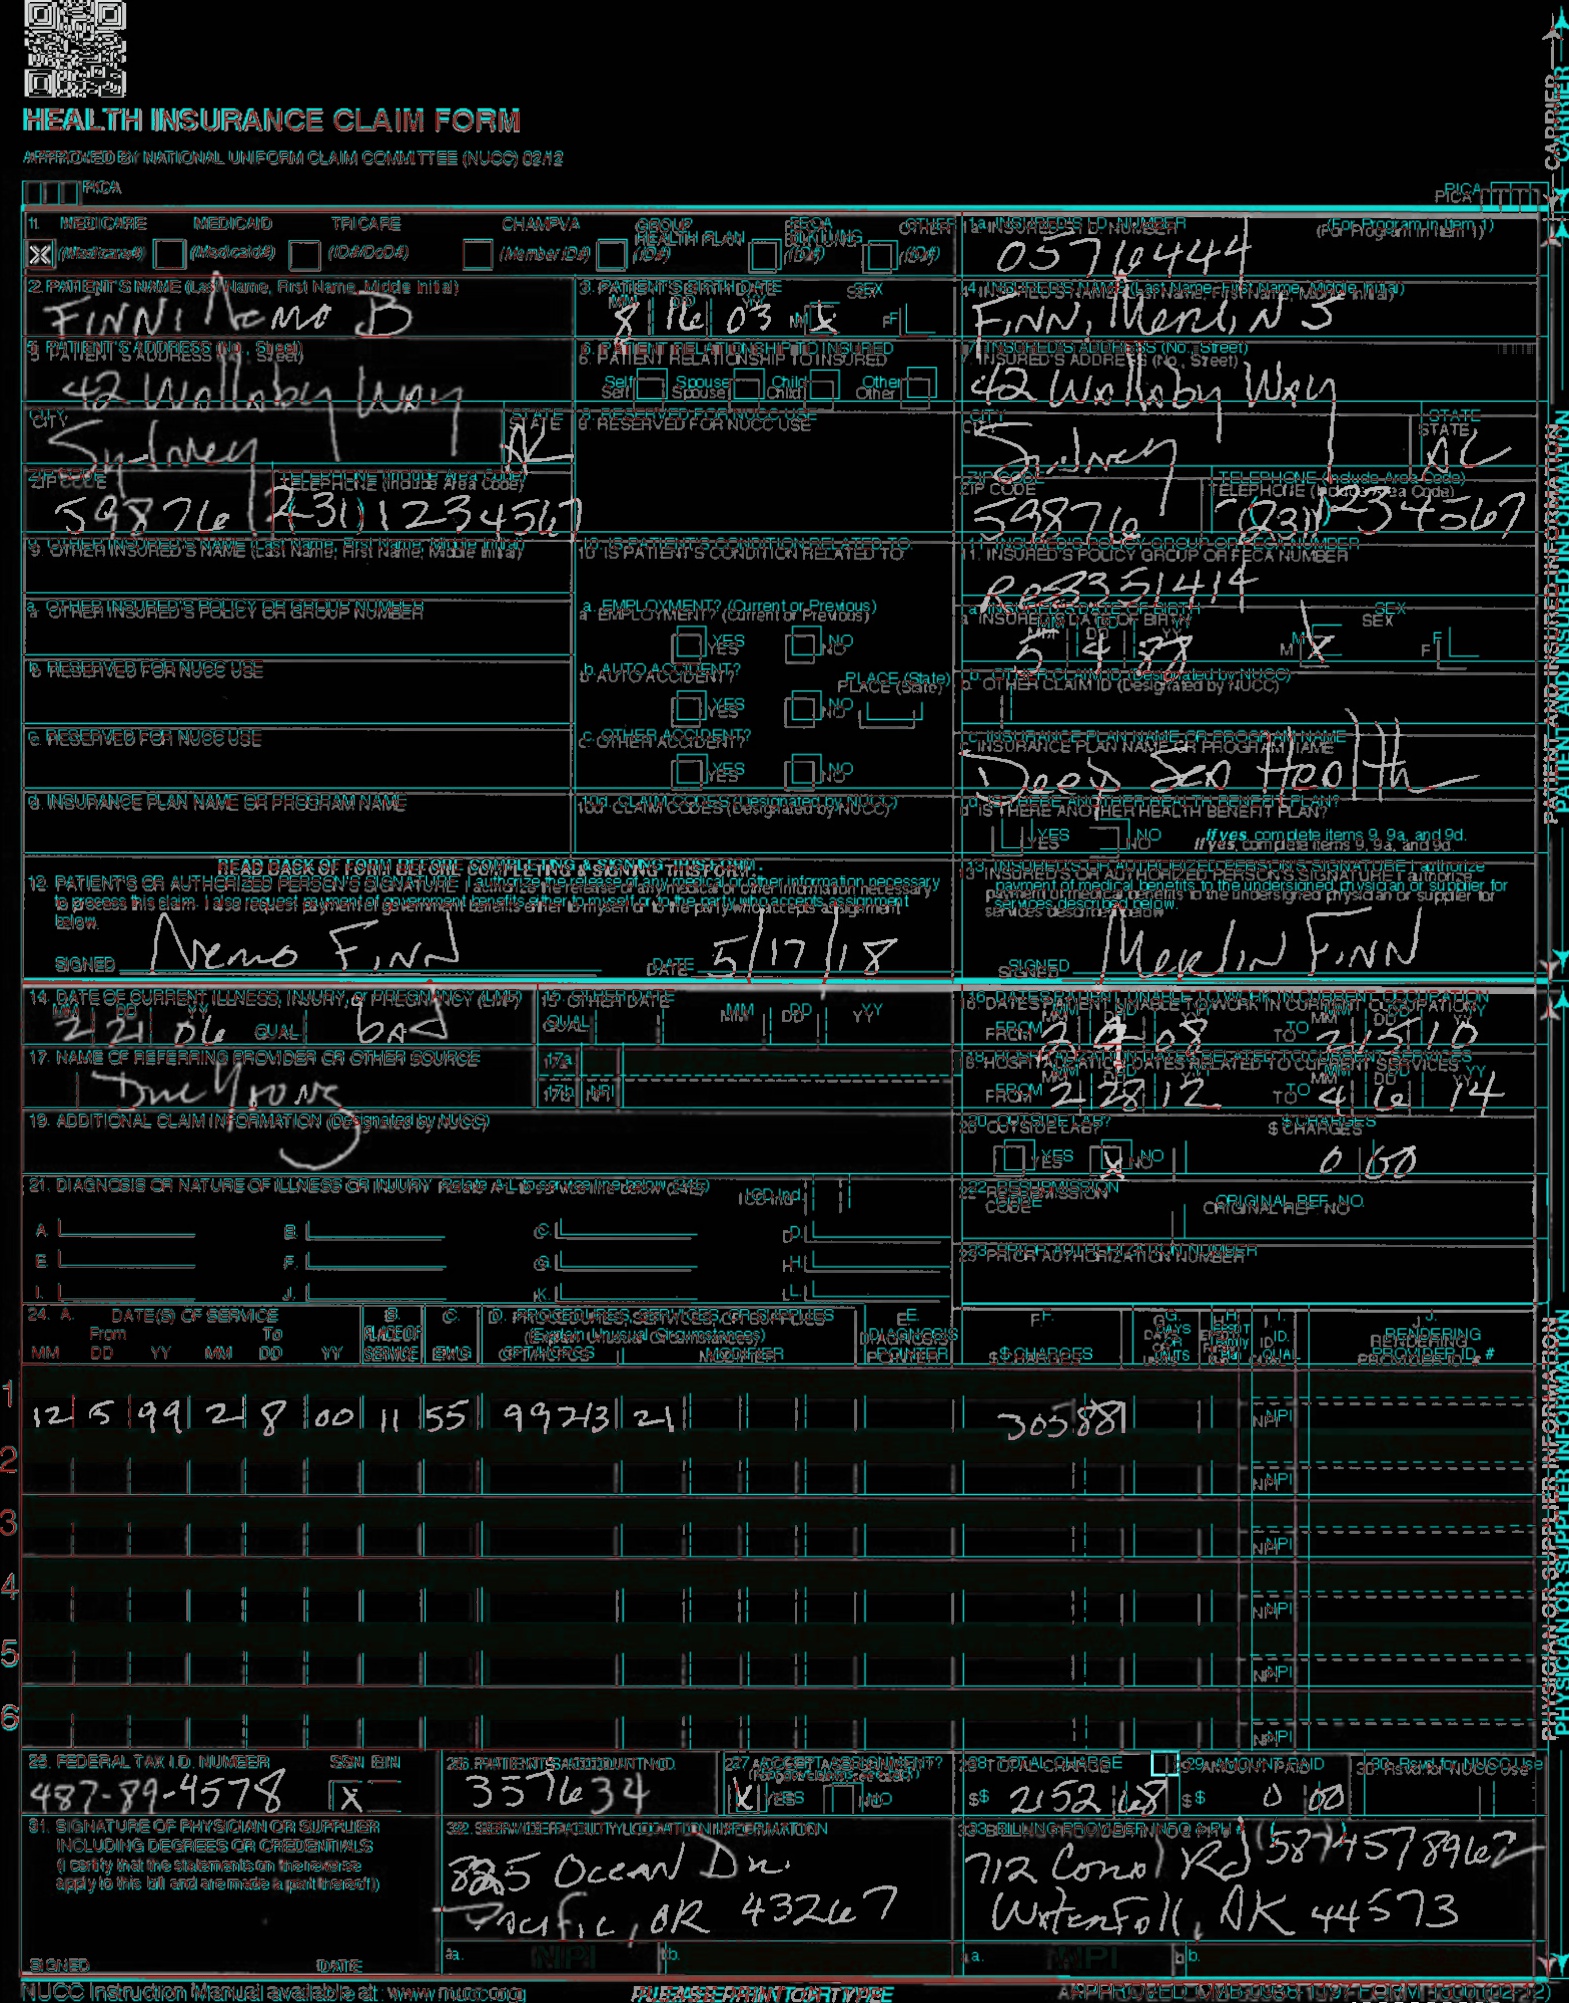 HEALTH INSURANCE CLAIM FORM
APPROVED BY NATIONAL UNIFORM CLAIM COMMITTEE (NUCC) 02/12
PICA PICA
CARRIER
1. MEDICARE MEDICAID TRICARE CHAMPVA GROUP HEALTH PLAN FECA OTHER
(Medicare#) (Medicaid#) (ID#/DoD#) (Member ID#) (ID#) (ID#) (ID#)
1a. INSURED'S I.D. NUMBER (For Program in Item 1)
05716444
2. PATIENT'S NAME (Last Name, First Name, Middle Initial)
FINN, Nemo B
3. PATIENT'S BIRTH DATE SEX
MM DD YY
8 16 03 M X F
4. INSURED'S NAME (Last Name, First Name, Middle Initial)
FINN, Merlin S
5. PATIENT'S ADDRESS (No., Street)
42 Wallaby Way
6. PATIENT RELATIONSHIP TO INSURED
Self Spouse Child Other
7. INSURED'S ADDRESS (No., Street)
42 Wallaby Way
CITY STATE
Sydney AK
8. RESERVED FOR NUCC USE
CITY STATE
Sydney
ZIP CODE TELEPHONE (Include Area Code)
59876 (231) 1234567
ZIP CODE TELEPHONE (Include Area Code)
59876 (231) 1234567
9. OTHER INSURED'S NAME (Last Name, First Name, Middle Initial)
10. IS PATIENT'S CONDITION RELATED TO:
11. INSURED'S POLICY GROUP OR FECA NUMBER
a. OTHER INSURED'S POLICY OR GROUP NUMBER
a. EMPLOYMENT? (Current or Previous)
YES NO
a. INSURED'S DATE OF BIRTH SEX
MM DD YY
5 4 88 M X F
b. RESERVED FOR NUCC USE
b. AUTO ACCIDENT? PLACE (State)
YES NO
b. OTHER CLAIM ID (Designated by NUCC)
c. RESERVED FOR NUCC USE
c. OTHER ACCIDENT?
YES NO
c. INSURANCE PLAN NAME OR PROGRAM NAME
Deep Sea Health
d. INSURANCE PLAN NAME OR PROGRAM NAME
10d. CLAIM CODES (Designated by NUCC)
d. IS THERE ANOTHER HEALTH BENEFIT PLAN?
YES NO If yes, complete items 9, 9a, and 9d.
PATIENT AND INSURED INFORMATION
READ BACK OF FORM BEFORE COMPLETING & SIGNING THIS FORM.
12. PATIENT'S OR AUTHORIZED PERSON'S SIGNATURE I authorize the release of any medical or other information necessary
to process this claim. I also request payment of government benefits either to myself or to the party who accepts assignment
below.
SIGNED Nemo Finn DATE 5/17/18
13. INSURED'S OR AUTHORIZED PERSON'S SIGNATURE I authorize
payment of medical benefits to the undersigned physician or supplier for
services described below.
SIGNED Merlin Finn
14. DATE OF CURRENT ILLNESS, INJURY, or PREGNANCY (LMP)
MM DD YY
2 21 06 QUAL. bad
15. OTHER DATE
QUAL. MM DD YY
16. DATES PATIENT UNABLE TO WORK IN CURRENT OCCUPATION
MM DD YY MM DD YY
FROM 2 08 TO 2 15 10
17. NAME OF REFERRING PROVIDER OR OTHER SOURCE
17a.
17b. NPI
18. HOSPITALIZATION DATES RELATED TO CURRENT SERVICES
MM DD YY MM DD YY
FROM 2 28 12 TO 4 6 14
19. ADDITIONAL CLAIM INFORMATION (Designated by NUCC)
20. OUTSIDE LAB? $ CHARGES
YES X NO 0 00
21. DIAGNOSIS OR NATURE OF ILLNESS OR INJURY Relate A-L to service line below (24E) ICD Ind.
A. B. C. D.
E. F. G. H.
I. J. K. L.
22. RESUBMISSION CODE ORIGINAL REF. NO.
23. PRIOR AUTHORIZATION NUMBER
24. A. DATE(S) OF SERVICE B. C. D. PROCEDURES, SERVICES, OR SUPPLIES E. F. G. H. I. J.
From To PLACE OF (Explain Unusual Circumstances) DIAGNOSIS DAYS ID. RENDERING
MM DD YY MM DD YY SERVICE EMG CPT/HCPCS MODIFIER POINTER $ CHARGES UNITS QUAL. PROVIDER ID. #
1 12 5 99 2 8 00 11 55 99213 21 305 88 NPI
2 NPI
3 NPI
4 NPI
5 NPI
6 NPI
PHYSICIAN OR SUPPLIER INFORMATION
25. FEDERAL TAX I.D. NUMBER SSN EIN
487-89-4578 X
26. PATIENT'S ACCOUNT NO.
357634
27. ACCEPT ASSIGNMENT?
X YES NO
28. TOTAL CHARGE
$ 2152 68
29. AMOUNT PAID
$ 0 00
30. Rsvd for NUCC Use
31. SIGNATURE OF PHYSICIAN OR SUPPLIER
INCLUDING DEGREES OR CREDENTIALS
(I certify that the statements on the reverse
apply to this bill and are made a part thereof.)
SIGNED DATE
32. SERVICE FACILITY LOCATION INFORMATION
Ocean Dr.
Pacific, OR 43267
a. NPI b.
33. BILLING PROVIDER INFO & PH # (587) 4578962
712 Coral Rd
Waterfall, AK 44573
a. NPI b.
NUCC Instruction Manual available at: www.nucc.org
PLEASE PRINT OR TYPE